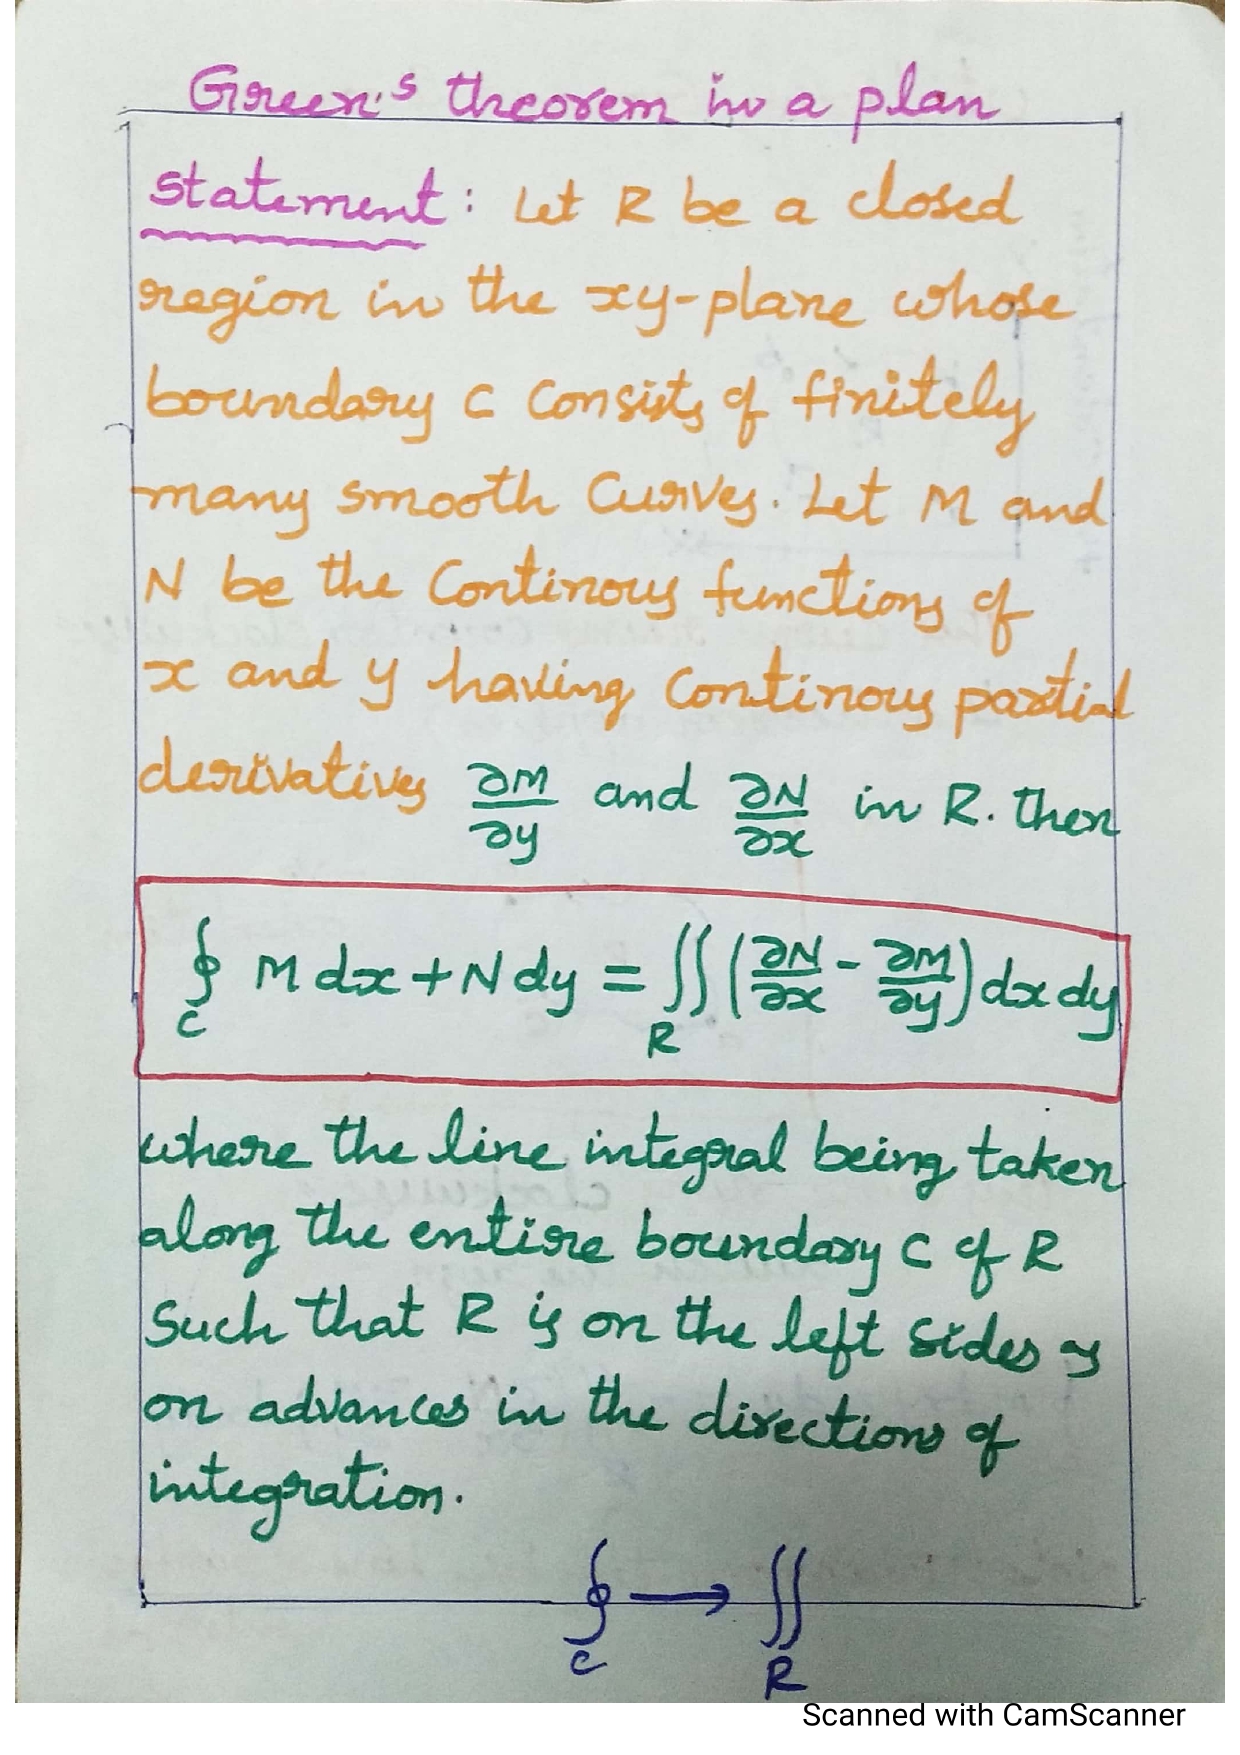 Green's theorem in a plan
statement: Let R be a closed
region in the xy-plane whose
boundary C consists of finitely
many smooth curves. Let M and
N be the continous functions of
x and y having continous partial
derivatives ∂M/∂y and ∂N/∂x in R. then
∮_C M dx + N dy = ∬_R (∂N/∂x - ∂M/∂y) dx dy
where the line integral being taken
along the entire boundary C of R
such that R is on the left sides as
on advances in the directions of
integration.
∮_C → ∬_R
Scanned with CamScanner